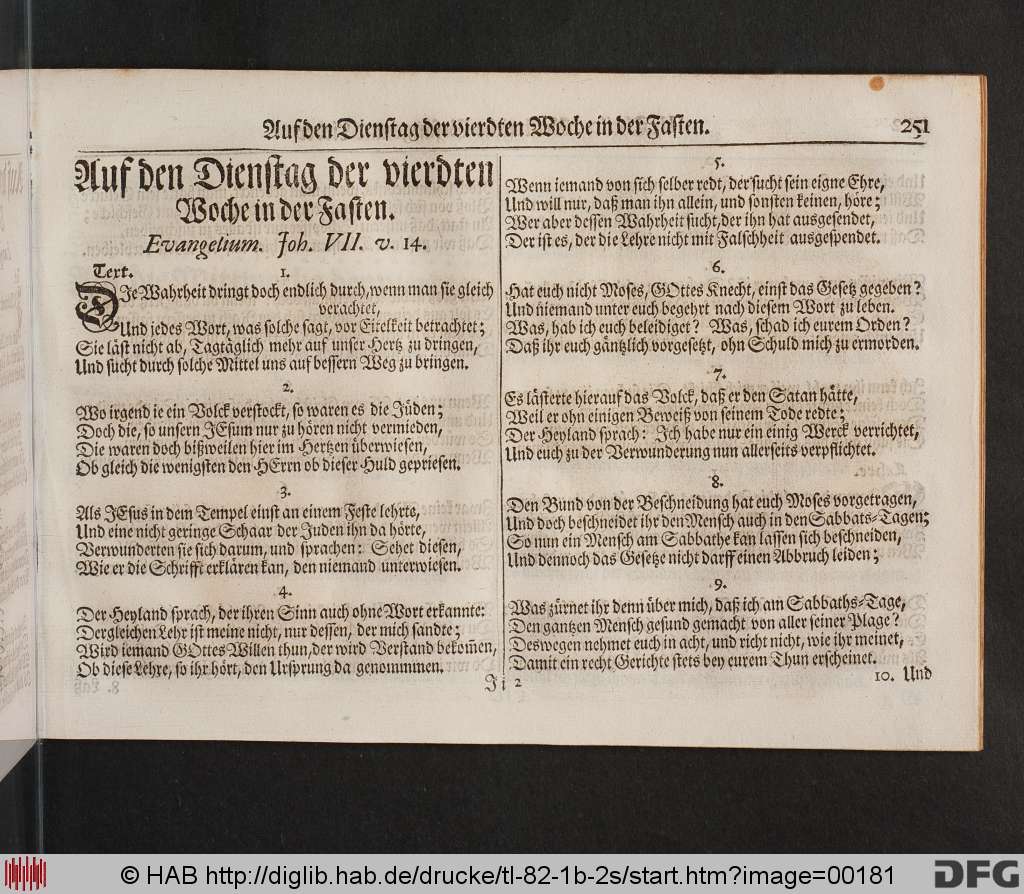 Auf den Dienstag der vierdten Woche in der Fasten.
251
Auf den Dienstag der vierdten
Woche in der Fasten.
Evangelium. Joh. VII. v. 14.
Text.
1.
DIe Wahrheit dringt doch endlich durch, wenn man sie gleich
verachtet,
Und jedes Wort, was solche sagt, vor Eitelkeit betrachtet;
Sie läst nicht ab, Tagtäglich mehr auf unser Hertz zu dringen,
Und sucht durch solche Mittel uns auf bessern Weg zu bringen.
2.
Wo irgend ie ein Volck verstockt, so waren es die Jüden;
Doch die, so unsern JEsum nur zu hören nicht vermieden,
Die waren doch bißweilen hier im Hertzen überwiesen,
Ob gleich die wenigsten den HErrn ob dieser Huld gepriesen.
3.
Als JEsus in dem Tempel einst an einem Feste lehrte,
Und eine nicht geringe Schaar der Juden ihn da hörte,
Verwunderten sie sich darum, und sprachen: Sehet diesen,
Wie er die Schrifft erklären kan, den niemand unterwiesen.
4.
Der Heyland sprach, der ihren Sinn auch ohne Wort erkannte:
Dergleichen Lehr ist meine nicht, nur dessen, der mich sandte;
Wird iemand GOttes Willen thun, der wird Verstand bekom̃en,
Ob diese Lehre, so ihr hört, den Ursprung da genommmen.
Ji 2
5.
Wenn iemand von sich selber redt, der sucht sein eigne Ehre,
Und will nur, daß man ihn allein, und sonsten keinen, höre;
Wer aber dessen Wahrheit sucht, der ihn hat ausgesendet,
Der ist es, der die Lehre nicht mit Falschheit ausgespendet.
6.
Hat euch nicht Moses, GOttes Knecht, einst das Gesetz gegeben?
Und niemand unter euch begehrt nach diesem Wort zu leben.
Was, hab ich euch beleidiget? Was, schad ich eurem Orden?
Daß ihr euch gäntzlich vorgesetzt, ohn Schuld mich zu ermorden.
7.
Es lästerte hierauf das Volck, daß er den Satan hätte,
Weil er ohn einigen Beweiß von seinem Tode redte;
Der Heyland sprach: Ich habe nur ein einig Werck verrichtet,
Und euch zu der Verwunderung nun allerseits verpflichtet.
8.
Den Bund von der Beschneidung hat euch Moses vorgetragen,
Und doch beschneidet ihr den Mensch auch in den Sabbats-Tagen;
So nun ein Mensch am Sabbathe kan lassen sich beschneiden,
Und dennoch das Gesetze nicht darff einen Abbruch leiden;
9.
Was zürnet ihr denn über mich, daß ich am Sabbaths-Tage,
Den gantzen Mensch gesund gemacht von aller seiner Plage?
Deswegen nehmet euch in acht, und richt nicht, wie ihr meinet,
Damit ein recht Gerichte stets bey eurem Thun erscheinet.
10. Und
© HAB http://diglib.hab.de/drucke/tl-82-1b-2s/start.htm?image=00181
DFG